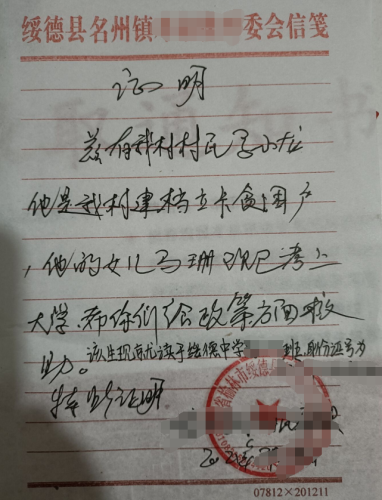 绥德县名州镇 委会信笺
证明
兹有我村村民马小龙
他是我村建档立卡贫困户
，他的女儿马珊现已考上
大学，希你们给政策方面救
助。该生现就读于绥德中学 班，身份证号为
特此证明
省榆林市绥德县
07812×201211